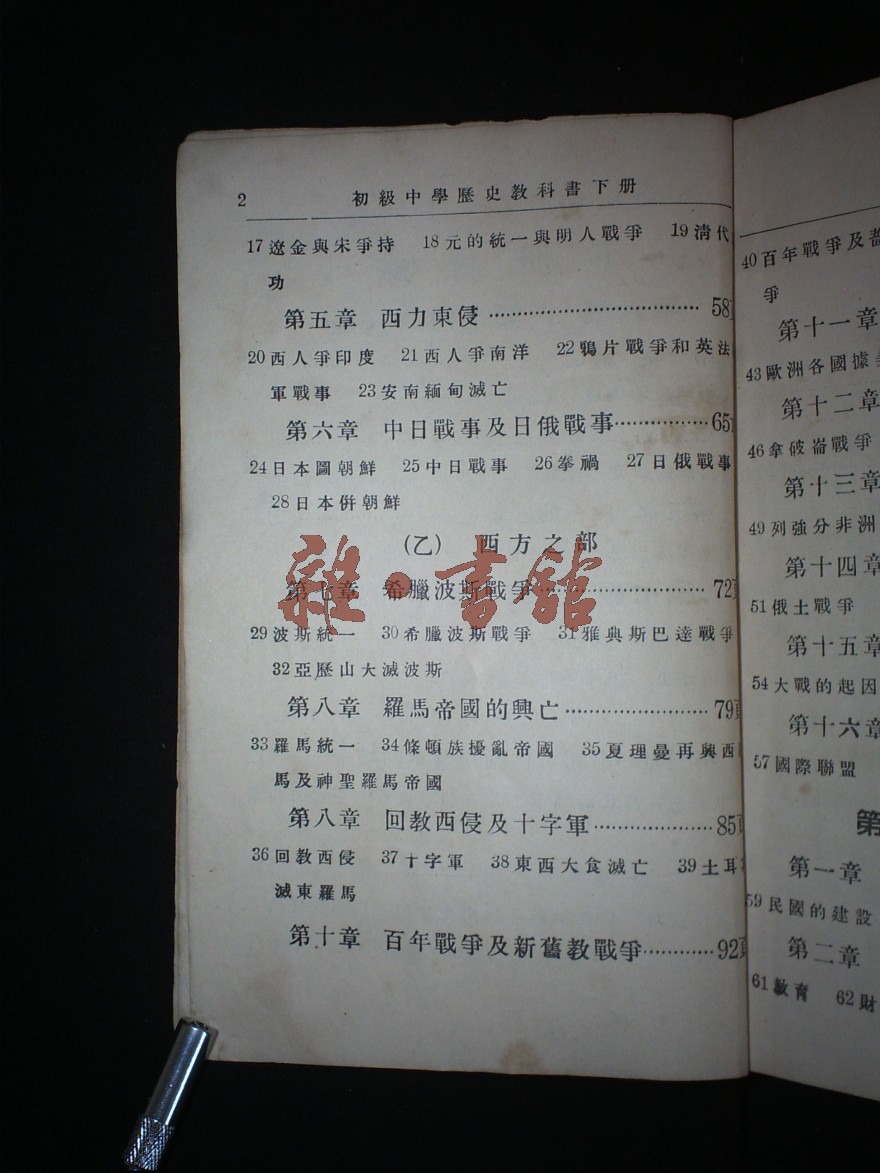 2 初級中學歷史教科書下册
17遼金與宋爭持 18元的統一與明人戰爭 19淸代
功
第五章 西力東侵……………………………58頁
20西人爭印度 21西人爭南洋 22鴉片戰爭和英法
軍戰事 23安南緬甸滅亡
第六章 中日戰事及日俄戰事……………65頁
24日本圖朝鮮 25中日戰事 26拳禍 27日俄戰事
28日本併朝鮮
(乙) 西方之部
第七章 希臘波斯戰爭……………………72頁
29波斯統一 30希臘波斯戰爭 31雅典斯巴達戰爭
32亞歷山大滅波斯
第八章 羅馬帝國的興亡…………………79頁
33羅馬統一 34條頓族擾亂帝國 35夏理曼再興西
馬及神聖羅馬帝國
第八章 回教西侵及十字軍………………85頁
36回教西侵 37十字軍 38東西大食滅亡 39土耳
滅東羅馬
第十章 百年戰爭及新舊教戰爭…………92頁
雜·書館
40百年戰爭及
爭
第十一章
43歐洲各國據
第十二章
46拿破崙戰爭
第十三章
49列強分非洲
第十四章
51俄土戰爭
第十五章
54大戰的起因
第十六章
57國際聯盟
第
第一章
59民國的建設
第二章
61教育 62財